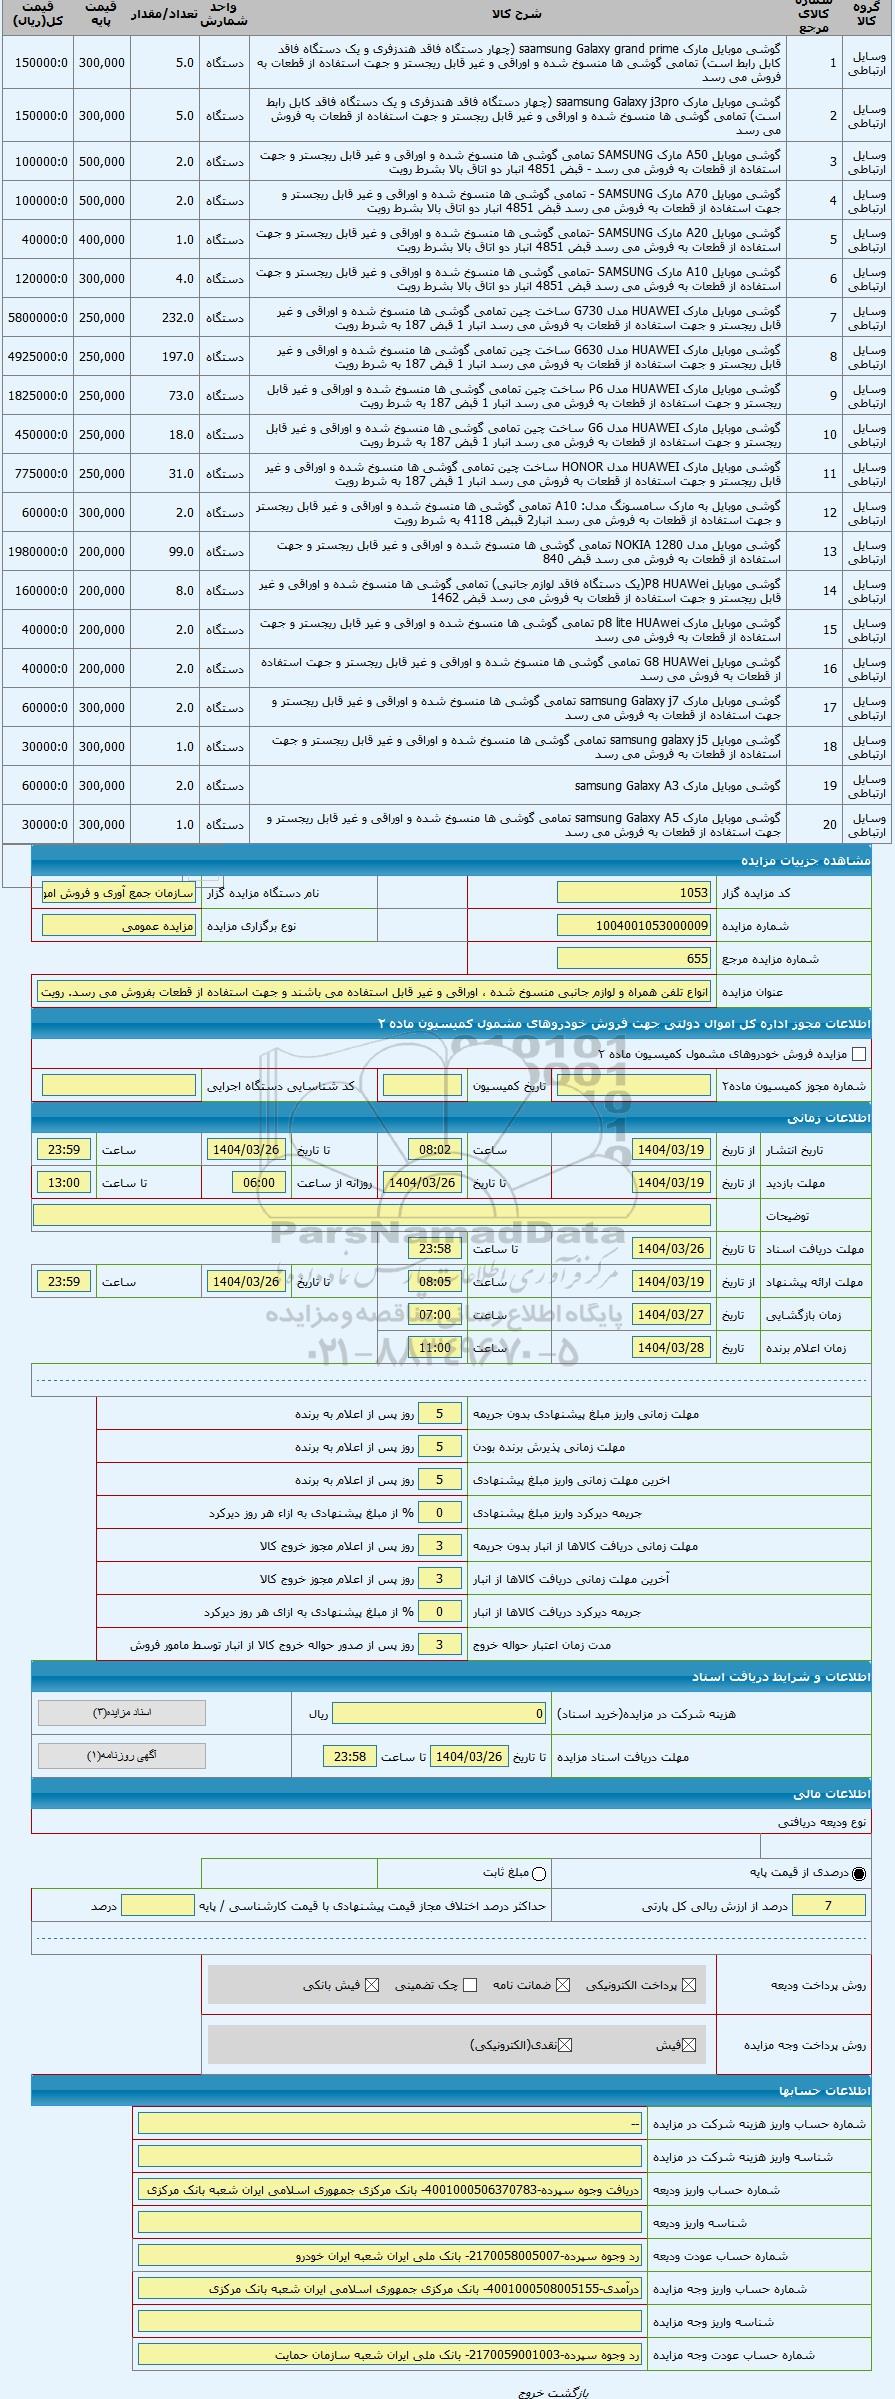 گروه کالا	شماره کالای مرجع	شرح کالا	واحد شمارش	تعداد/مقدار	قیمت پایه	قیمت کل(ریال)
وسایل ارتباطی	1	گوشی موبایل مارک saamsung Galaxy grand prime (چهار دستگاه فاقد هندزفری و یک دستگاه فاقد
کابل رابط است) تمامی گوشی ها منسوخ شده و اوراقی و غیر قابل ریجستر و جهت استفاده از قطعات به
فروش می رسد	دستگاه	5.0	300,000	150000:0
وسایل ارتباطی	2	گوشی موبایل مارک saamsung Galaxy j3pro (چهار دستگاه فاقد هندزفری و یک دستگاه فاقد کابل رابط
است) تمامی گوشی ها منسوخ شده و اوراقی و غیر قابل ریجستر و جهت استفاده از قطعات به فروش
می رسد	دستگاه	5.0	300,000	150000:0
وسایل ارتباطی	3	گوشی موبایل A50 مارک SAMSUNG تمامی گوشی ها منسوخ شده و اوراقی و غیر قابل ریجستر و جهت
استفاده از قطعات به فروش می رسد - قبض 4851 انبار دو اتاق بالا بشرط رویت	دستگاه	2.0	500,000	100000:0
وسایل ارتباطی	4	گوشی موبایل A70 مارک SAMSUNG - تمامی گوشی ها منسوخ شده و اوراقی و غیر قابل ریجستر و
جهت استفاده از قطعات به فروش می رسد قبض 4851 انبار دو اتاق بالا بشرط رویت	دستگاه	2.0	500,000	100000:0
وسایل ارتباطی	5	گوشی موبایل A20 مارک SAMSUNG -تمامی گوشی ها منسوخ شده و اوراقی و غیر قابل ریجستر و جهت
استفاده از قطعات به فروش می رسد قبض 4851 انبار دو اتاق بالا بشرط رویت	دستگاه	1.0	400,000	40000:0
وسایل ارتباطی	6	گوشی موبایل A10 مارک SAMSUNG -تمامی گوشی ها منسوخ شده و اوراقی و غیر قابل ریجستر و جهت
استفاده از قطعات به فروش می رسد قبض 4851 انبار دو اتاق بالا بشرط رویت	دستگاه	4.0	300,000	120000:0
وسایل ارتباطی	7	گوشی موبایل مارک HUAWEI مدل G730 ساخت چین تمامی گوشی ها منسوخ شده و اوراقی و غیر
قابل ریجستر و جهت استفاده از قطعات به فروش می رسد انبار 1 قبض 187 به شرط رویت	دستگاه	232.0	250,000	5800000:0
وسایل ارتباطی	8	گوشی موبایل مارک HUAWEI مدل G630 ساخت چین تمامی گوشی ها منسوخ شده و اوراقی و غیر
قابل ریجستر و جهت استفاده از قطعات به فروش می رسد انبار 1 قبض 187 به شرط رویت	دستگاه	197.0	250,000	4925000:0
وسایل ارتباطی	9	گوشی موبایل مارک HUAWEI مدل P6 ساخت چین تمامی گوشی ها منسوخ شده و اوراقی و غیر قابل
ریجستر و جهت استفاده از قطعات به فروش می رسد انبار 1 قبض 187 به شرط رویت	دستگاه	73.0	250,000	1825000:0
وسایل ارتباطی	10	گوشی موبایل مارک HUAWEI مدل G6 ساخت چین تمامی گوشی ها منسوخ شده و اوراقی و غیر قابل
ریجستر و جهت استفاده از قطعات به فروش می رسد انبار 1 قبض 187 به شرط رویت	دستگاه	18.0	250,000	450000:0
وسایل ارتباطی	11	گوشی موبایل مارک HUAWEI مدل HONOR ساخت چین تمامی گوشی ها منسوخ شده و اوراقی و غیر
قابل ریجستر و جهت استفاده از قطعات به فروش می رسد انبار 1 قبض 187 به شرط رویت	دستگاه	31.0	250,000	775000:0
وسایل ارتباطی	12	گوشی موبایل به مارک سامسونگ مدل: A10 تمامی گوشی ها منسوخ شده و اوراقی و غیر قابل ریجستر
و جهت استفاده از قطعات به فروش می رسد انبار2 قبیض 4118 به شرط رویت	دستگاه	2.0	300,000	60000:0
وسایل ارتباطی	13	گوشی موبایل مدل NOKIA 1280 تمامی گوشی ها منسوخ شده و اوراقی و غیر قابل ریجستر و جهت
استفاده از قطعات به فروش می رسد قبض 840	دستگاه	99.0	200,000	1980000:0
وسایل ارتباطی	14	گوشی موبایل P8 HUAWei(یک دستگاه فاقد لوازم جانبی) تمامی گوشی ها منسوخ شده و اوراقی و غیر
قابل ریجستر و جهت استفاده از قطعات به فروش می رسد قبض 1462	دستگاه	8.0	200,000	160000:0
وسایل ارتباطی	15	گوشی موبایل مارک p8 lite HUAwei تمامی گوشی ها منسوخ شده و اوراقی و غیر قابل ریجستر و جهت
استفاده از قطعات به فروش می رسد	دستگاه	2.0	200,000	40000:0
وسایل ارتباطی	16	گوشی موبایل G8 HUAWei تمامی گوشی ها منسوخ شده و اوراقی و غیر قابل ریجستر و جهت استفاده
از قطعات به فروش می رسد	دستگاه	2.0	200,000	40000:0
وسایل ارتباطی	17	گوشی موبایل مارک samsung Galaxy j7 تمامی گوشی ها منسوخ شده و اوراقی و غیر قابل ریجستر و
جهت استفاده از قطعات به فروش می رسد	دستگاه	2.0	300,000	60000:0
وسایل ارتباطی	18	گوشی موبایل مارک samsung galaxy j5 تمامی گوشی ها منسوخ شده و اوراقی و غیر قابل ریجستر و جهت
استفاده از قطعات به فروش می رسد	دستگاه	1.0	300,000	30000:0
وسایل ارتباطی	19	گوشی موبایل مارک samsung Galaxy A3	دستگاه	2.0	300,000	60000:0
وسایل ارتباطی	20	گوشی موبایل مارک samsung Galaxy A5 تمامی گوشی ها منسوخ شده و اوراقی و غیر قابل ریجستر و
جهت استفاده از قطعات به فروش می رسد	دستگاه	1.0	300,000	30000:0
مشاهده جزییات مزایده
کد مزایده گزار 1053 نام دستگاه مزایده گزار سازمان جمع آوری و فروش امو
شماره مزایده 1004001053000009 نوع برگزاری مزایده مزایده عمومی
شماره مزایده مرجع 655
عنوان مزایده انواع تلفن همراه و لوازم جانبی منسوخ شده ، اوراقی و غیر قابل استفاده می باشند و جهت استفاده از قطعات بفروش می رسد. رویت
اطلاعات مجوز اداره کل اموال دولتی جهت فروش خودروهای مشمول کمیسیون ماده ۲
مزایده فروش خودروهای مشمول کمیسیون ماده ۲
شماره مجوز کمیسیون ماده۲ تاریخ کمیسیون کد شناسایی دستگاه اجرایی
اطلاعات زمانی
تاریخ انتشار از تاریخ 1404/03/19 ساعت 08:02 تا تاریخ 1404/03/26 ساعت 23:59
مهلت بازدید از تاریخ 1404/03/19 تا تاریخ 1404/03/26 روزانه از ساعت 06:00 تا ساعت 13:00
توضیحات
ParsNamadData
مهلت دریافت اسناد تا تاریخ 1404/03/26 تا ساعت 23:58
مهلت ارائه پیشنهاد از تاریخ 1404/03/19 ساعت 08:05 تا تاریخ 1404/03/26 ساعت 23:59
زمان بازگشایی تاریخ 1404/03/27 ساعت 07:00
پایگاه اطلاع رسانی مناقصه و مزایده
زمان اعلام برنده تاریخ 1404/03/28 ساعت 11:00
۰۲۱-۸۸۳۴۹۶۷۰-۵
مهلت زمانی واریز مبلغ پیشنهادی بدون جریمه 5 روز پس از اعلام به برنده
مهلت زمانی پذیرش برنده بودن 5 روز پس از اعلام به برنده
اخرین مهلت زمانی واریز مبلغ پیشنهادی 5 روز پس از اعلام به برنده
جریمه دیرکرد واریز مبلغ پیشنهادی 0 % از مبلغ پیشنهادی به ازاء هر روز دیرکرد
مهلت زمانی دریافت کالاها از انبار بدون جریمه 3 روز پس از اعلام مجوز خروج کالا
آخرین مهلت زمانی دریافت کالاها از انبار 3 روز پس از اعلام مجوز خروج کالا
جریمه دیرکرد دریافت کالاها از انبار 0 % از مبلغ پیشنهادی به ازای هر روز دیرکرد
مدت زمان اعتبار حواله خروج 3 روز پس از صدور حواله خروج کالا از انبار توسط مامور فروش
اطلاعات و شرایط دریافت اسناد
هزینه شرکت در مزایده(خرید اسناد) 0 ریال اسناد مزایده(۳)
مهلت دریافت اسناد مزایده تا تاریخ 1404/03/26 تا ساعت 23:58 آگهی روزنامه(۱)
اطلاعات مالی
نوع ودیعه دریافتی
درصدی از قیمت پایه مبلغ ثابت
7 درصد از ارزش ریالی کل پارتی حداکثر درصد اختلاف مجاز قیمت پیشنهادی با قیمت کارشناسی / پایه درصد
روش پرداخت ودیعه پرداخت الکترونیکی ضمانت نامه چک تضمینی فیش بانکی
روش پرداخت وجه مزایده فیش نقدی(الکترونیکی)
اطلاعات حسابها
شماره حساب واریز هزینه شرکت در مزایده --
شناسه واریز هزینه شرکت در مزایده
شماره حساب واریز ودیعه دریافت وجوه سپرده-4001000506370783- بانک مرکزی جمهوری اسلامی ایران شعبه بانک مرکزی
شناسه واریز ودیعه
شماره حساب عودت ودیعه رد وجوه سپرده-2170058005007- بانک ملی ایران شعبه ایران خودرو
شماره حساب واریز وجه مزایده درآمدی-4001000508005155- بانک مرکزی جمهوری اسلامی ایران شعبه بانک مرکزی
شناسه واریز وجه مزایده
شماره حساب عودت وجه مزایده رد وجوه سپرده-2170059001003- بانک ملی ایران شعبه سازمان حمایت
بازگشت خروج